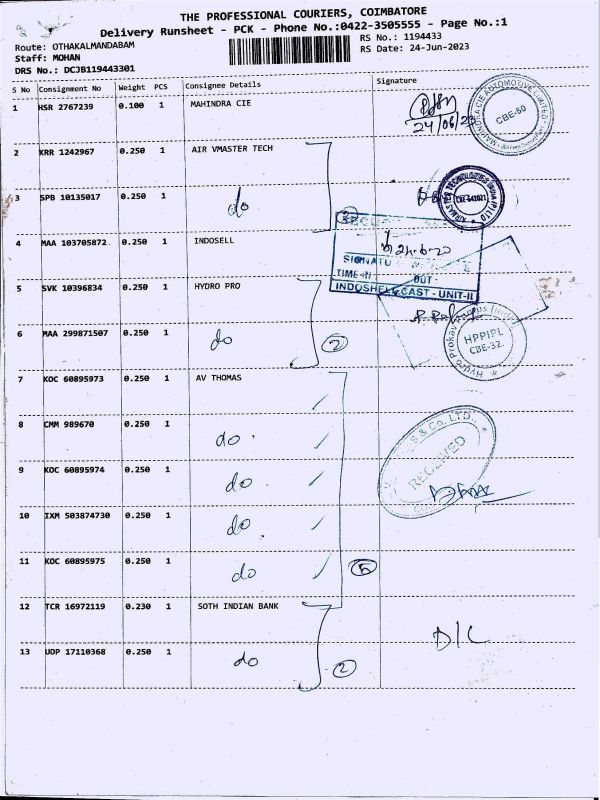 THE PROFESSIONAL COURIERS, COIMBATORE
Delivery Runsheet - PCK - Phone No.:0422-3505555 - Page No.:1
Route: OTHAKALMANDABAM
RS No.: 1194433
Staff: MOHAN
RS Date: 24-Jun-2023
DRS No.: DCJB119443301
S No Consignment No Weight PCS Consignee Details Signature
1 HSR 2767239 0.100 1 MAHINDRA CIE
24/06/23
MAHINDRA CIE AUTOMOTIVE LIMITED
CBE-50
2 KRR 1242967 0.250 1 AIR VMASTER TECH
3 SPB 10135017 0.250 1 do
2
4 MAA 103705872 0.250 1 INDOSELL
24-6-20
TIME-II OUT-
INDOSHELL CAST - UNIT-II
5 SVK 10396834 0.250 1 HYDRO PRO
6 MAA 299871507 0.250 1 do 2
HPPIPL
CBE-32.
7 KOC 60895973 0.250 1 AV THOMAS
8 CMM 989670 0.250 1 do
S & Co. LTD.
RECEIVED
9 KOC 60895974 0.250 1 do
10 IXM 503874730 0.250 1 do
11 KOC 60895975 0.250 1 do 5
12 TCR 16972119 0.230 1 SOTH INDIAN BANK
D/C
13 UDP 17110368 0.250 1 do 2